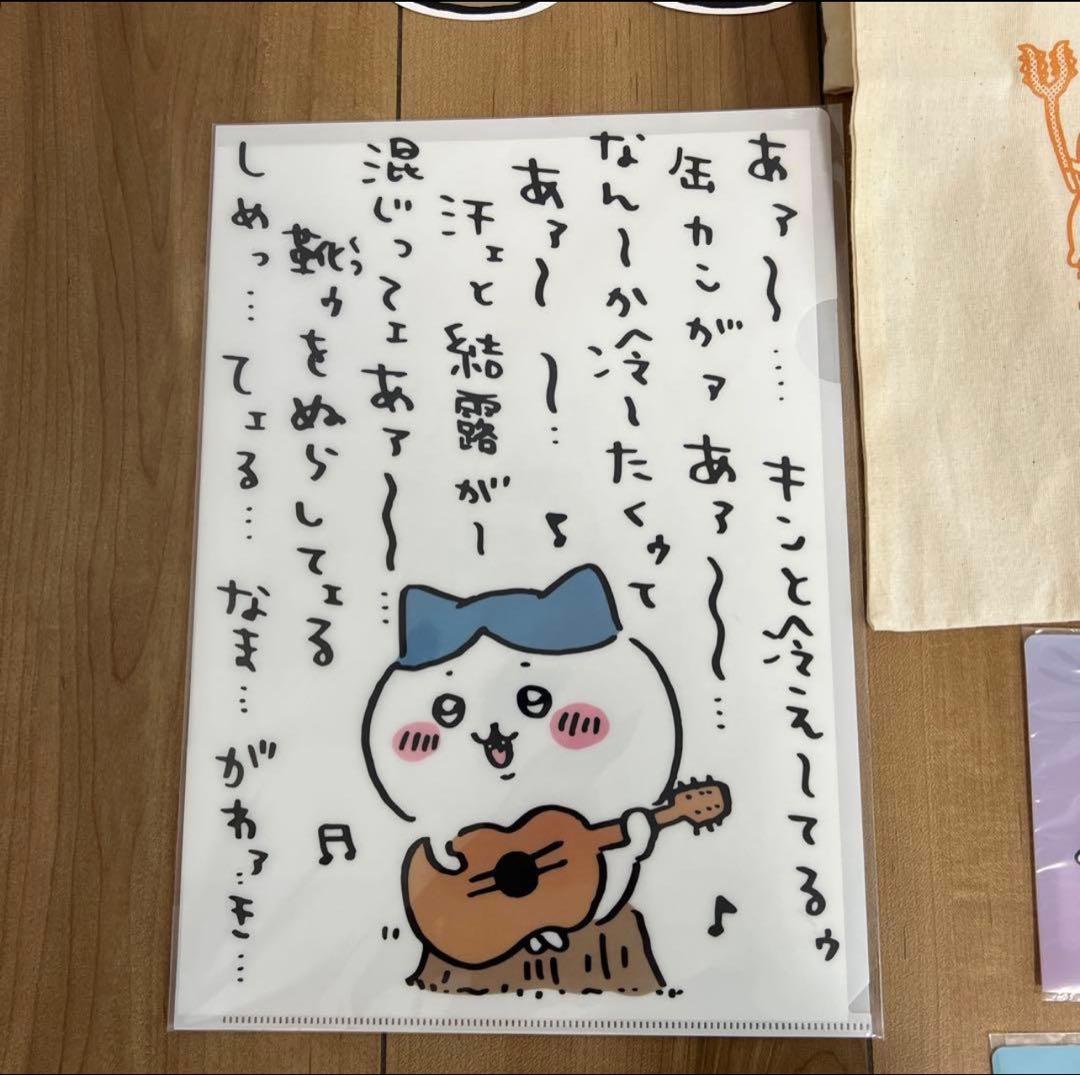 あァ～‥‥ キンと冷えーてるゥ
缶カンがァ あァ～～…
なん～か冷～たくゥて
あァ～ ～…
汗ェと結露がー
混じってェあァ～…
靴ゥをぬらしてェる
くつ
しめっ…てェる… なま… がわァ…き…